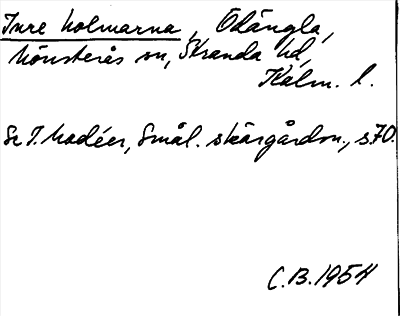 Inre holmarna, Ödängla,
Mönsterås sn, Stranda hd,
Kalm. l.
Se T. Modéer, Smål. skärgårdsn., s. 70.
C.B. 1954